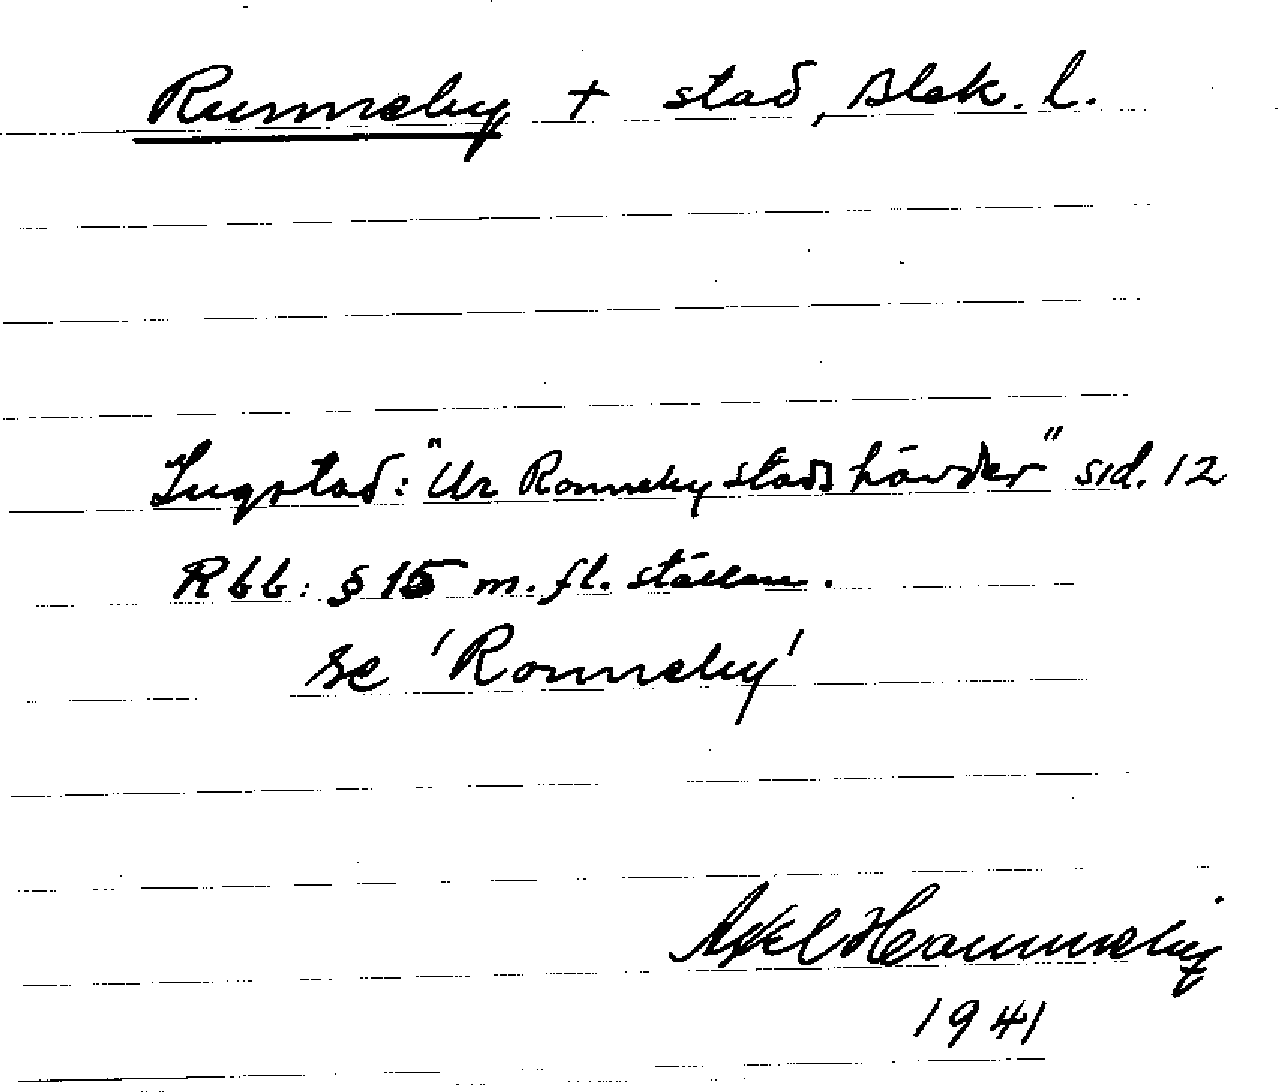 Runneby + stad, Blek. l.
Lugstad: "Ur Ronneby stads hävder" sid. 12
Rbb: § 15 m. fl. ställen.
se 'Ronneby'
Axel Hamneby
1941